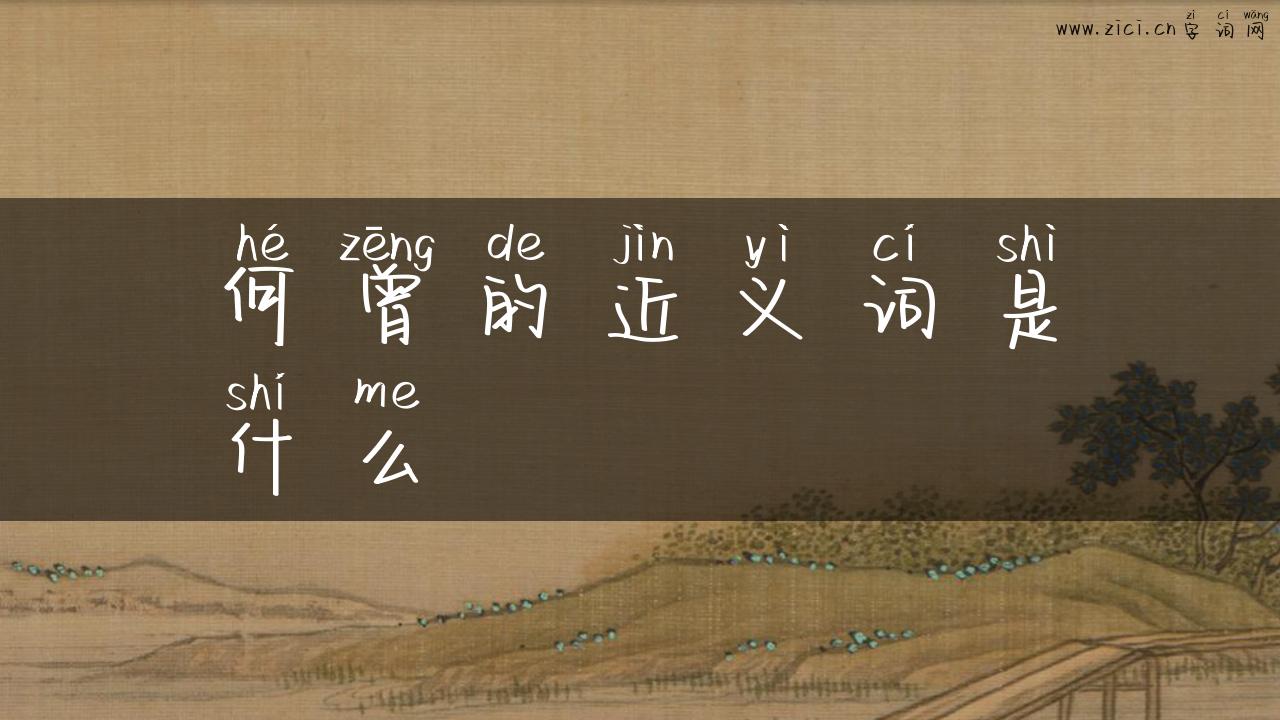 zì cí wǎng
www.zici.cn字词网
hé zēng de jìn yì cí shì
何曾的近义词是
shí me
什么